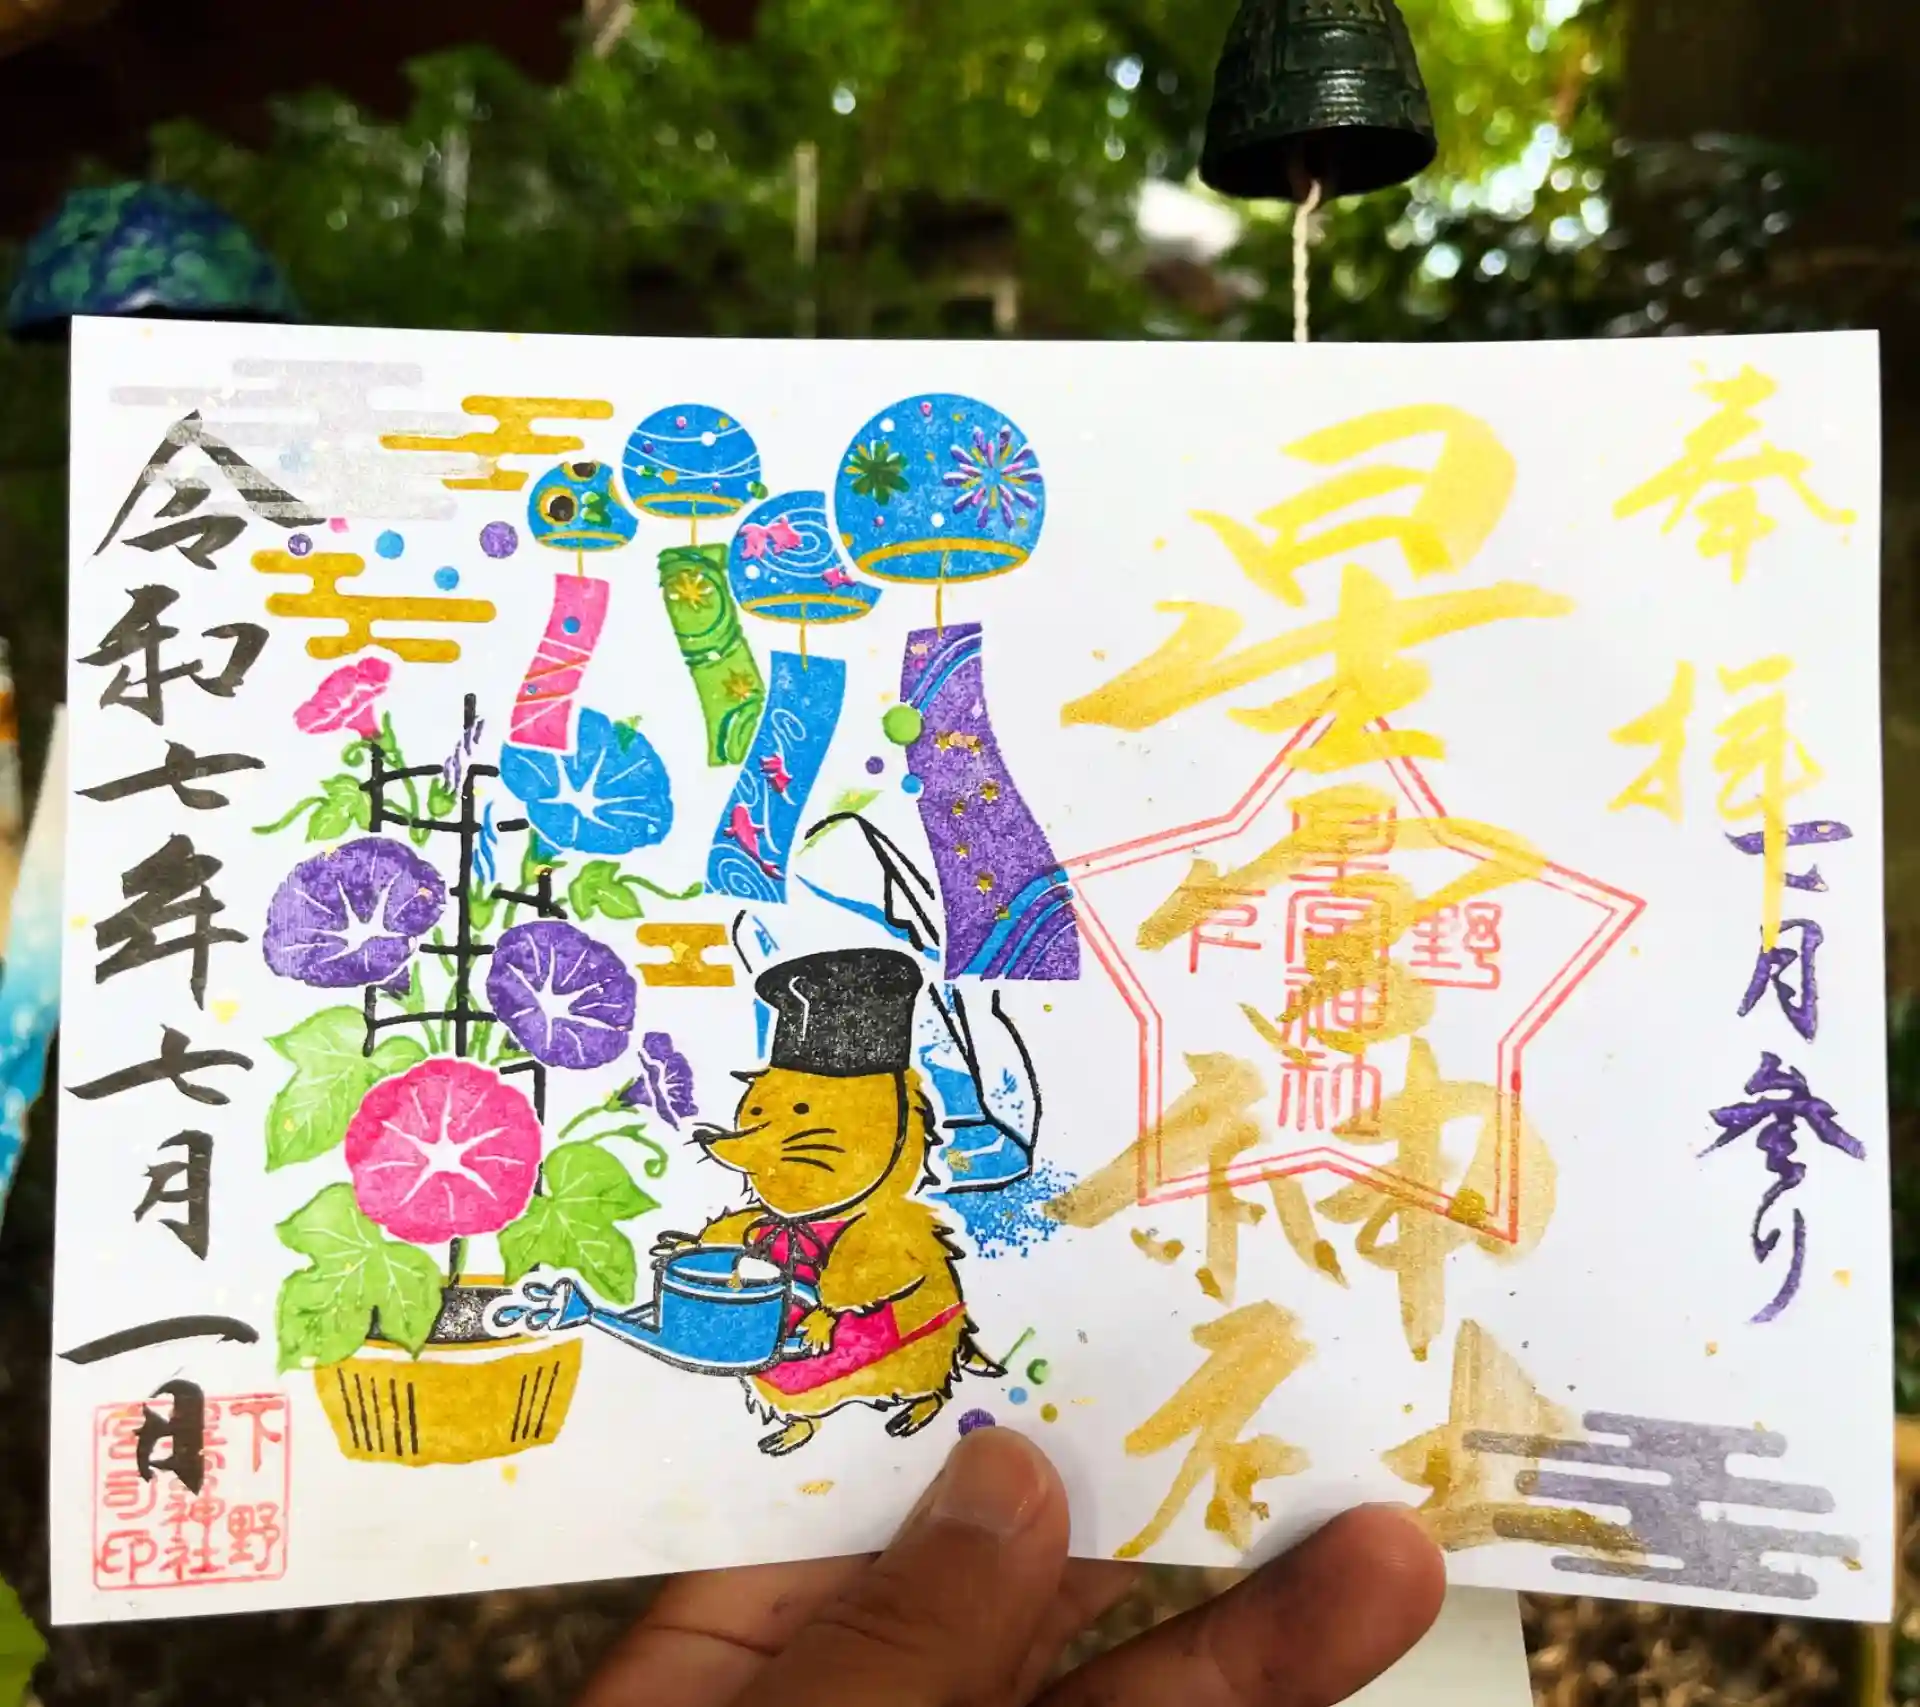 奉拝
七月参り
星宮神社
下野
星宮神社
令和七年七月一日
下野
星宮神社
宮司印